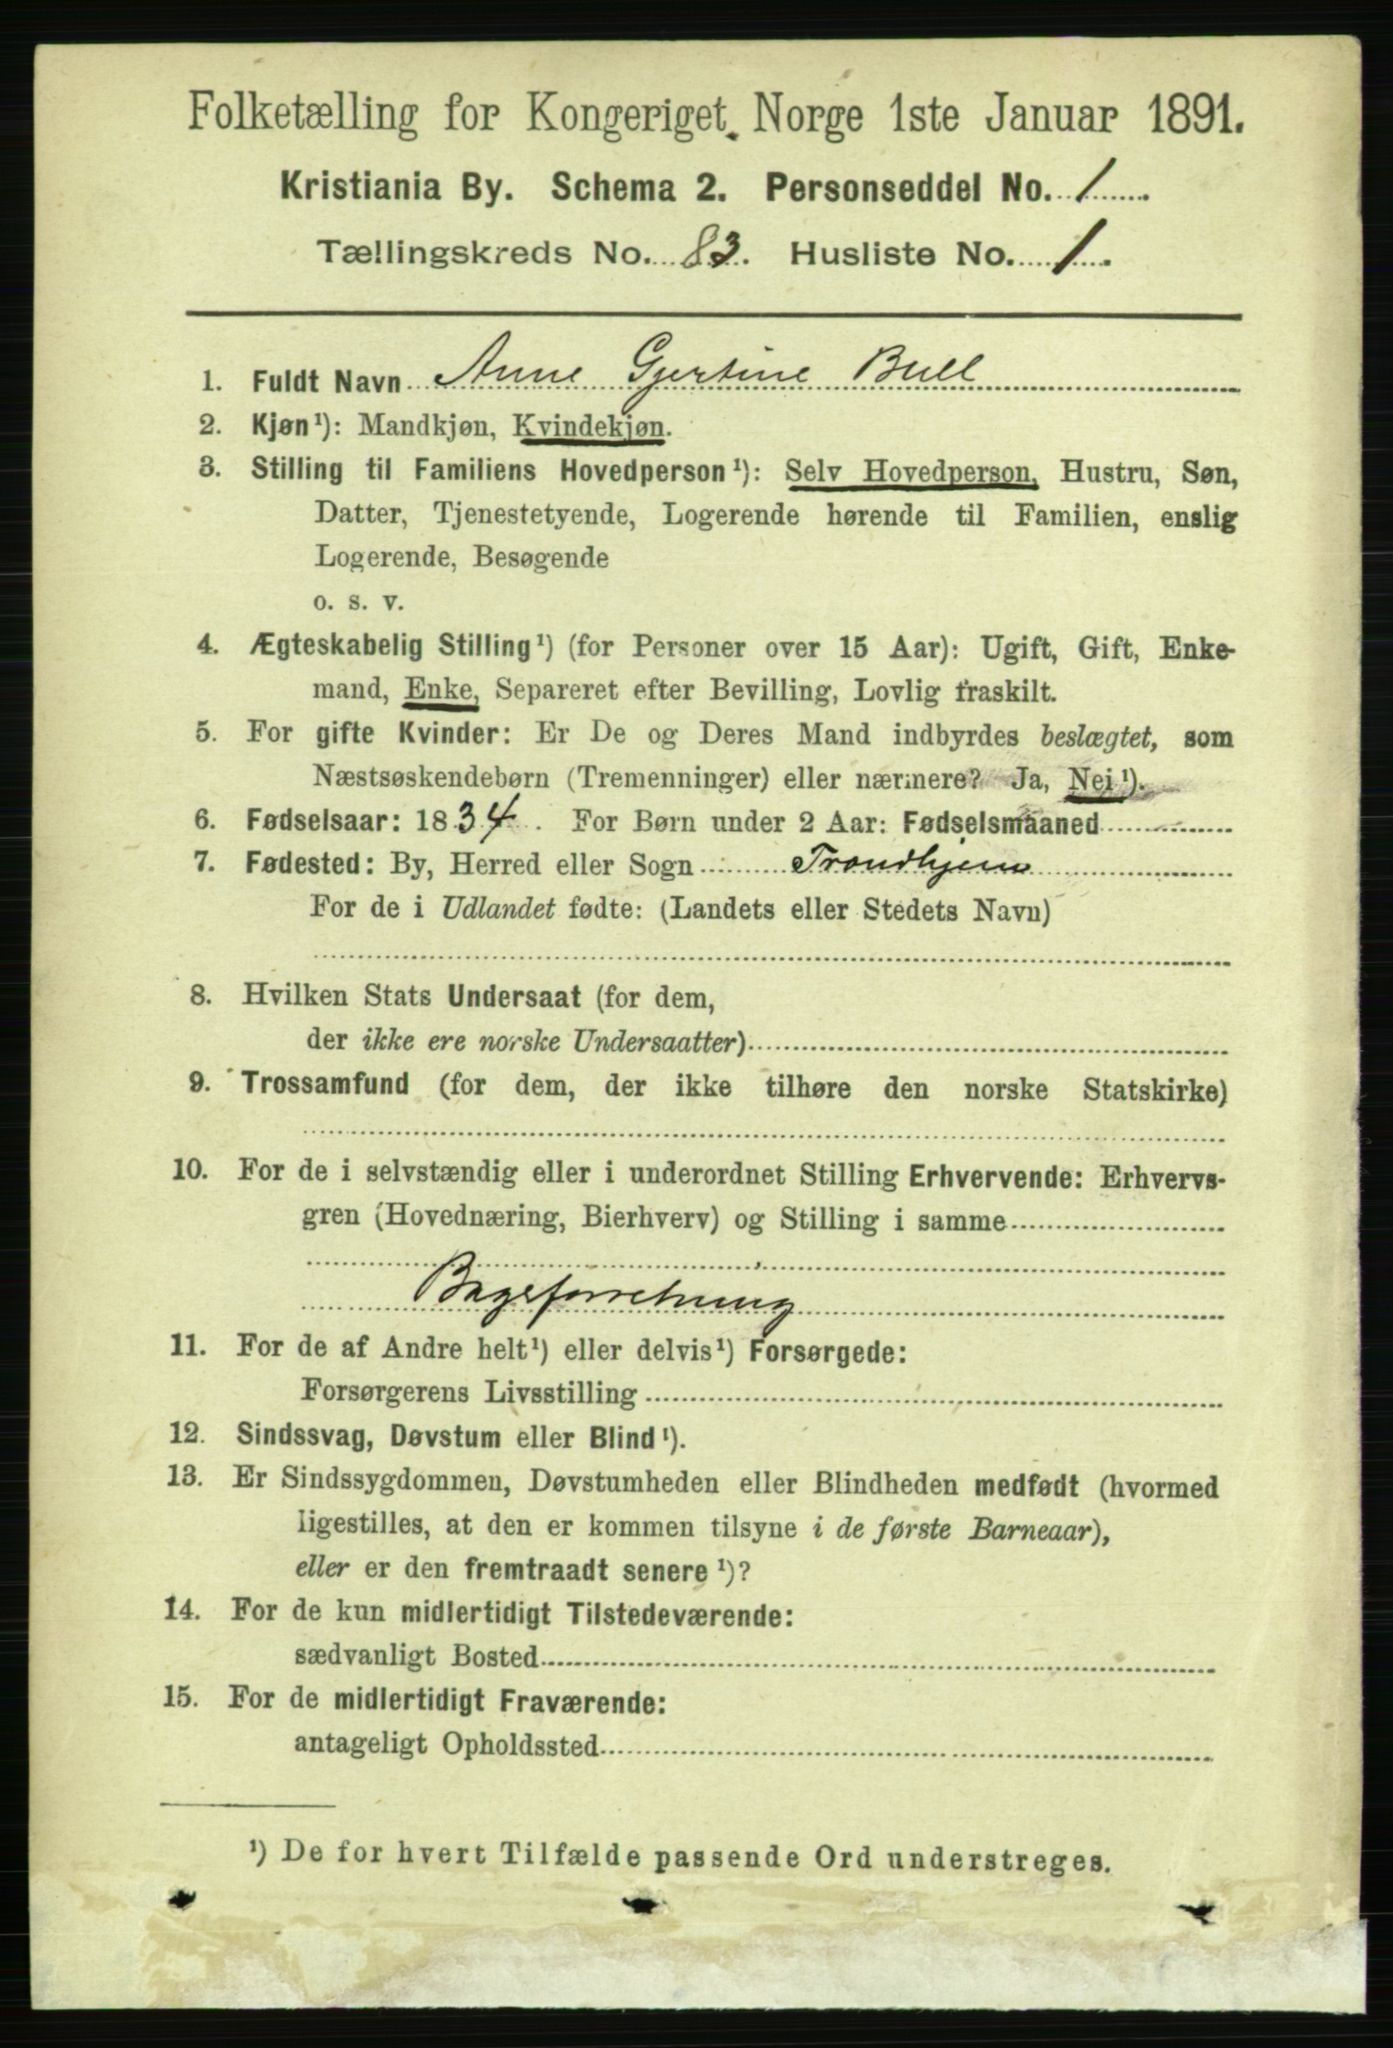 Folketælling for Kongeriget Norge 1ste Januar 1891.
Kristiania By. Schema 2. Personseddel No. 1
Tællingskreds No. 83. Husliste No. 1.
1. Fuldt Navn Anne Gjertine Bull
2. Kjøn¹): Mandkjøn, Kvindekjøn.
3. Stilling til Familiens Hovedperson¹): Selv Hovedperson, Hustru, Søn,
Datter, Tjenestetyende, Logerende hørende til Familien, enslig
Logerende, Besøgende
o. s. v.
4. Ægteskabelig Stilling¹) (for Personer over 15 Aar): Ugift, Gift, Enke-
mand, Enke, Separeret efter Bevilling, Lovlig fraskilt.
5. For gifte Kvinder: Er De og Deres Mand indbyrdes beslægtet, som
Næstsøskendebørn (Tremenninger) eller nærmere? Ja, Nei¹).
6. Fødselsaar: 1834. For Børn under 2 Aar: Fødselsmaaned
7. Fødested: By, Herred eller Sogn Trondhjem
For de i Udlandet fødte: (Landets eller Stedets Navn)
8. Hvilken Stats Undersaat (for dem,
der ikke ere norske Undersaatter)
9. Trossamfund (for dem, der ikke tilhøre den norske Statskirke)
10. For de i selvstændig eller i underordnet Stilling Erhvervende: Erhvervs-
gren (Hovednæring, Bierhverv) og Stilling i samme
Bageforretning
11. For de af Andre helt¹) eller delvis¹) Forsørgede:
Forsørgerens Livsstilling
12. Sindssvag, Døvstum eller Blind¹).
13. Er Sindssygdommen, Døvstumheden eller Blindheden medfødt (hvormed
ligestilles, at den er kommen tilsyne i de første Barneaar),
eller er den fremtraadt senere¹)?
14. For de kun midlertidigt Tilstedeværende:
sædvanligt Bosted
15. For de midlertidigt Fraværende:
antageligt Opholdssted
¹) De for hvert Tilfælde passende Ord understreges.